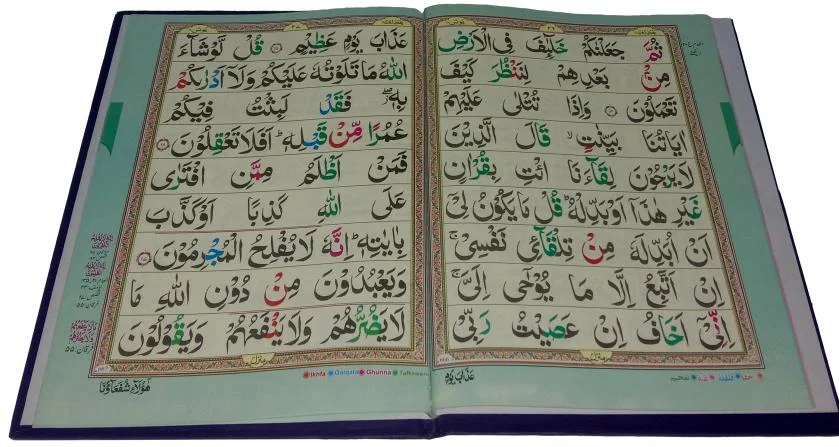 ثُمَّ جَعَلْنٰكُمْ خَلٰٓئِفَ فِی الْاَرْضِ
مِنْۢ بَعْدِهِمْ لِنَنْظُرَ كَیْفَ
تَعْمَلُوْنَ وَاِذَا تُتْلٰی عَلَیْهِمْ
اٰیَاتُنَا بَیِّنٰتٍ ۙ قَالَ الَّذِیْنَ
لَا یَرْجُوْنَ لِقَآءَنَا ائْتِ بِقُرْاٰنٍ
غَیْرِ هٰذَاۤ اَوْ بَدِّلْهُ ؕ قُلْ مَا یَكُوْنُ لِیْۤ
اَنْ اُبَدِّلَهٗ مِنْ تِلْقَآئِ نَفْسِیْ ۚ
اِنْ اَتَّبِعُ اِلَّا مَا یُوْحٰۤی اِلَیَّ ۚ
اِنِّیْۤ اَخَافُ اِنْ عَصَیْتُ رَبِّیْ
عَذَابَ یَوْمٍ
عَذَابَ یَوْمٍ عَظِیْمٍ قُلْ لَّوْ شَآءَ
اللّٰهُ مَا تَلَوْتُهٗ عَلَیْكُمْ وَلَاۤ اَدْرٰىكُمْ
بِهٖ ۖ فَقَدْ لَبِثْتُ فِیْكُمْ
عُمُرًا مِّنْ قَبْلِهٖ ؕ اَفَلَا تَعْقِلُوْنَ
فَمَنْ اَظْلَمُ مِمَّنِ افْتَرٰی
عَلَی اللّٰهِ كَذِبًا اَوْ كَذَّبَ
بِاٰیٰتِهٖ ؕ اِنَّهٗ لَا یُفْلِحُ الْمُجْرِمُوْنَ
وَیَعْبُدُوْنَ مِنْ دُوْنِ اللّٰهِ مَا
لَا یَضُرُّهُمْ وَلَا یَنْفَعُهُمْ وَیَقُوْلُوْنَ
Ikhfa Qalqala Ghunna Tafkheem
هٰۤؤُلَآءِ شُفَعَآؤُنَا